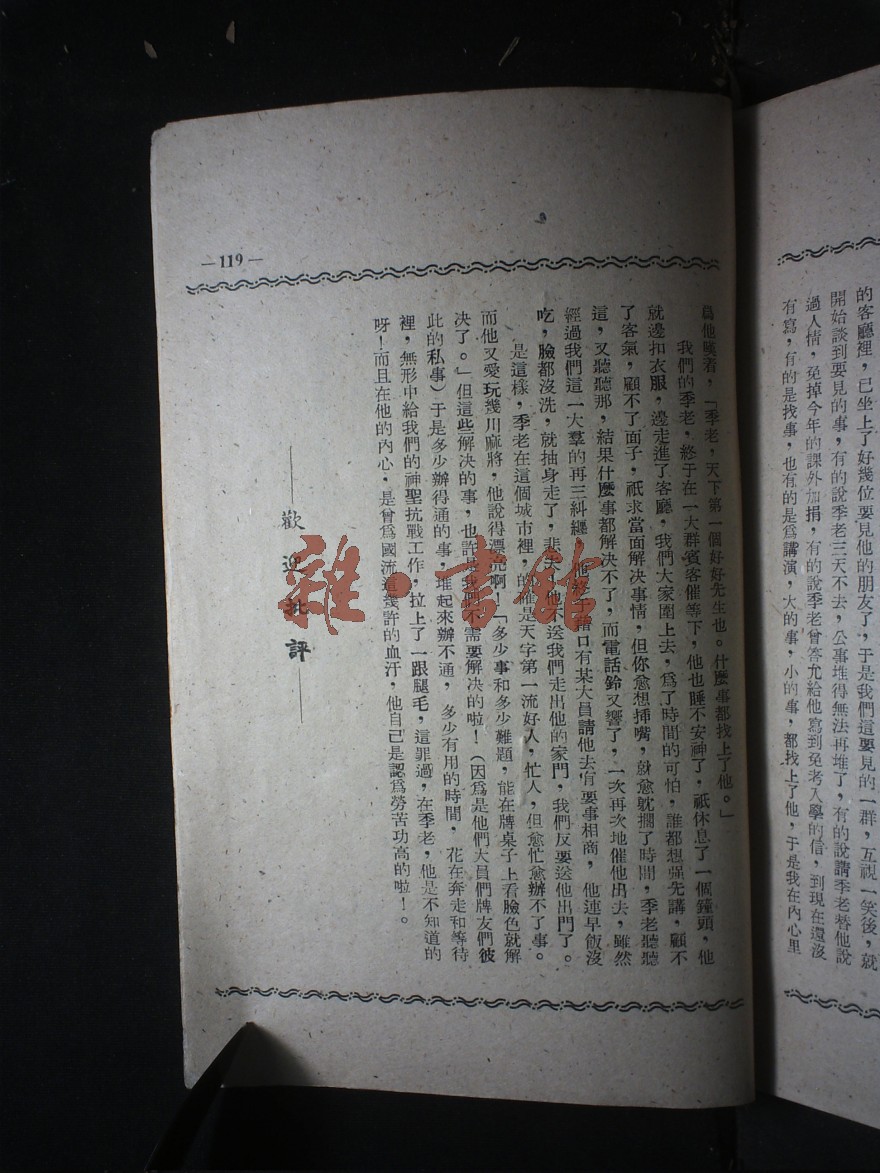 的客廳裡，已坐上了好幾位要見他的朋友了，于是我們這要見的一群，互視一笑後，就
開始談到要見的事，有的說季老三天不去，公事堆得無法再堆了，有的說請季老替他說
過人情，免掉今年的課外加捐，有的說季老曾答允給他寫到免考入學的信，到現在還沒
有寫，有的是找事，也有的是爲講演，大的事，小的事，都找上了他，于是我在內心里
爲他嘆着，「季老，天下第一個好好先生也。什麼事都找上了他。」
我們的季老，終于在一大群賓客催等下，他也睡不安神了，祇休息了一個鐘頭，他
就邊扣衣服，邊走進了客廳，我們大家圍上去，爲了時間的可怕，誰都想强先講，顧不
了客氣，顧不了面子，祇求當面解决事情，但你愈想揷嘴，就愈躭擱了時間，季老聽聽
這，又聽聽那，結果什麼事都解决不了，而電話鈴又響了，一次再次地催他出去，雖然
經過我們這一大羣的再三糾纏，他終于藉口有某大員請他去有要事相商，他連早飯沒
吃，臉都沒洗，就抽身走了，他不送我們走出他的家門，我們反要送他出門了。
是這樣，季老在這個城市裡，的確是天字第一流好人，忙人，但愈忙愈辦不了事。
而他又愛玩幾川麻將，他說得漂亮啊！「多少事和多少難題，能在牌桌子上看臉色就解
决了。」但這些解决的事，也許是我們不需要解决的啦！（因爲是他們大員們牌友們彼
此的私事）于是多少辦得通的事，堆起來辦不通，多少有用的時間，花在奔走和等待
裡，無形中給我們的神聖抗戰工作，拉上了一跟腿毛，這罪過，在季老，他是不知道的
呀！而且在他的內心，是曾爲國流過幾許的血汗，他自己是認爲勞苦功高的啦！。
——歡迎批評——
—119—
雜·書館